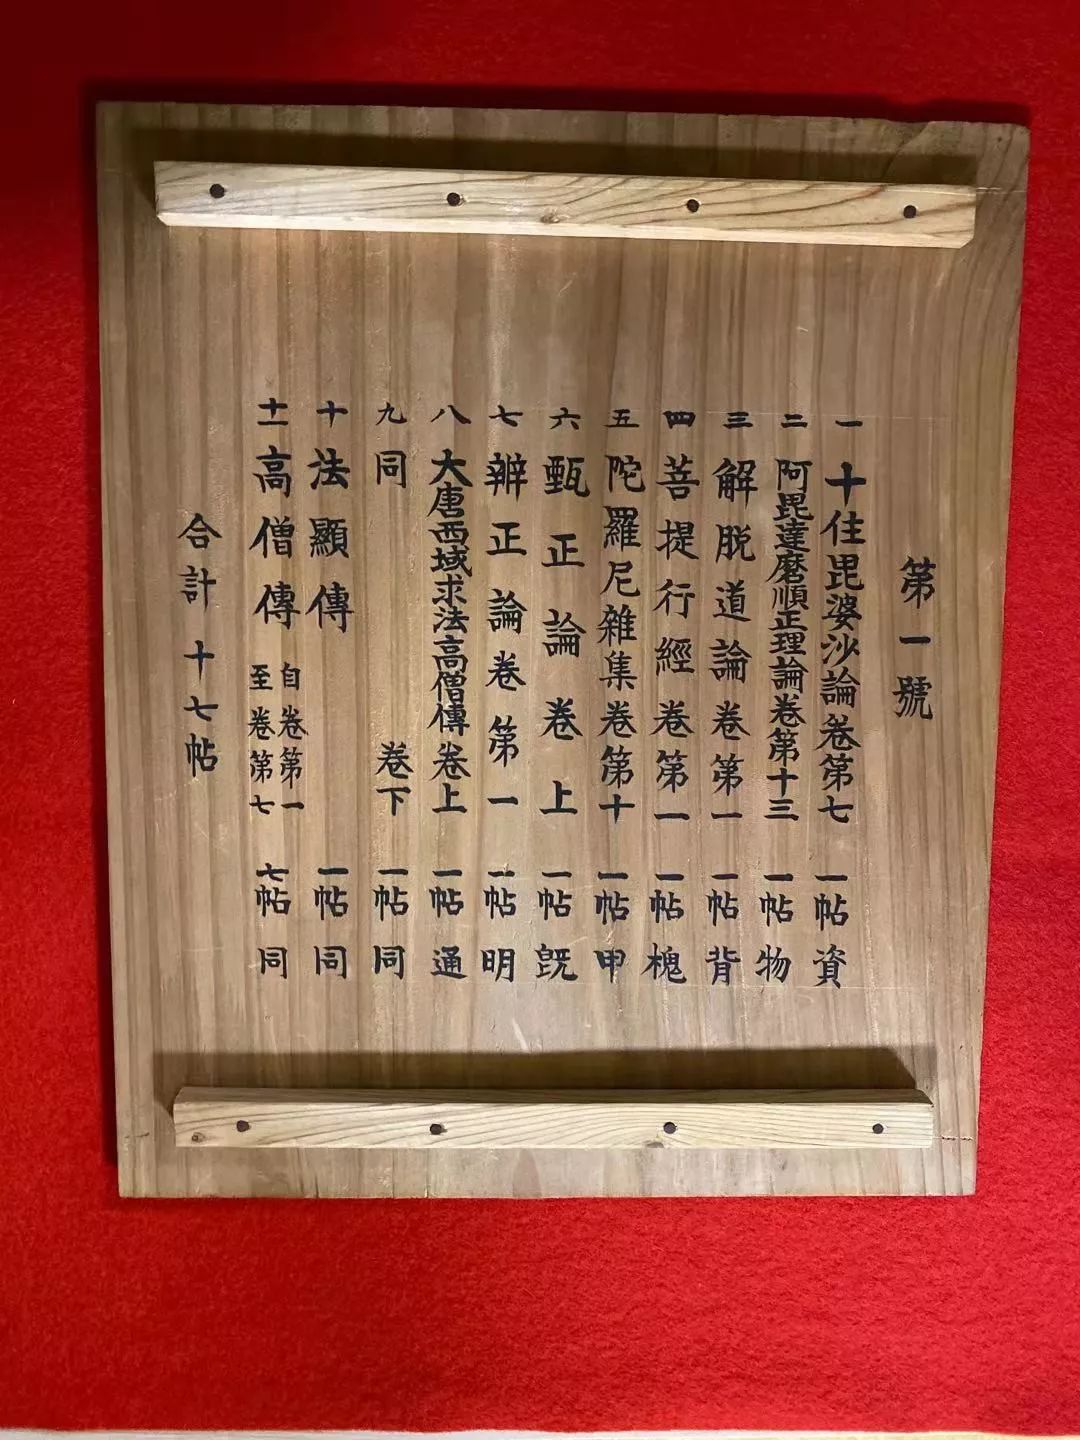 第一號
一 十住毘婆沙論卷第七 一帖 資
二 阿毘達磨順正理論卷第十三 一帖 物
三 解脱道論卷第一 一帖 背
四 菩提行經卷第一 一帖 槐
五 陀羅尼雜集卷第十 一帖 甲
六 甄正論卷上 一帖 既
七 辨正論卷第一 一帖 明
八 大唐西域求法高僧傳卷上 一帖 通
九 同 卷下 一帖 同
十 法顯傳 一帖 同
十一 高僧傳 自卷第一 至卷第七 七帖 同
合計十七帖